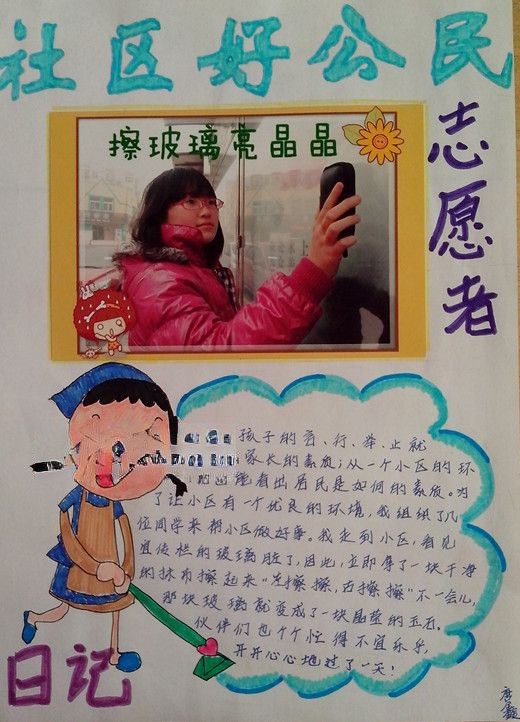 社区好公民
志愿者
擦玻璃亮晶晶
孩子的言、行、举、止就
家长的素质;从一个小区的环
能看出居民是如何的素质。为
了让小区有一个优良的环境,我组织了几
位同学来帮小区做好事。我走到小区,看见
宣传栏的玻璃脏了,因此,立即拿了一块干净
的抹布擦起来“左擦擦,右擦擦”不一会儿,
那块玻璃就变成了一块晶莹的玉石。
伙伴们也个个忙得不宜乐乎,
开开心心地过了一天!
日记